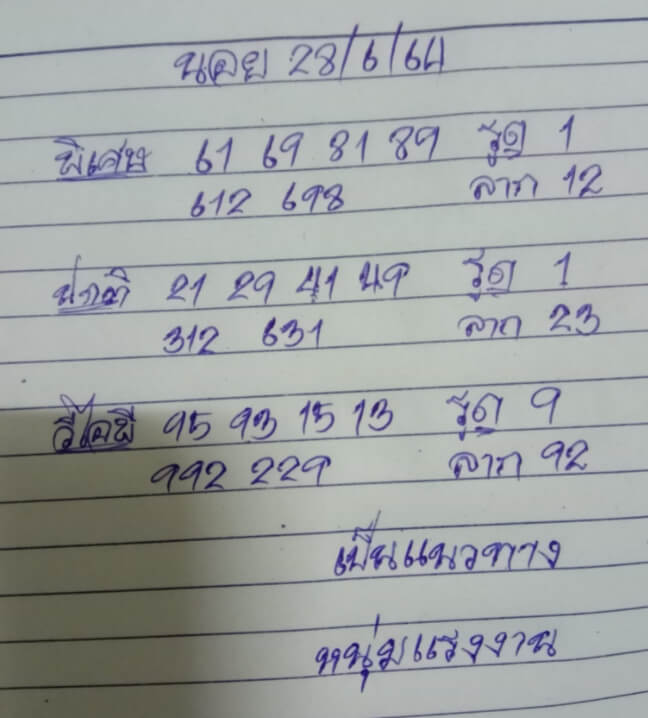 นอย 28/6/64
พิเศษ 61 69 81 89 รูด 1
612 698 ลาก 12
ปกติ 21 29 41 49 รูด 1
312 631 ลาก 23
วีไอพี 95 93 15 13 รูด 9
992 229 ลาก 92
เป็นแนวทาง
หนุ่มแรงงาน